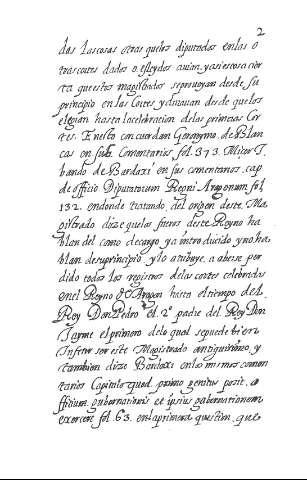 2
das las cosas otras que los diputados en las o
tras cortes dados o esleydos avian, y assi es cosa cier
ta que estos magistrados se proveyan desde su
principio en las Cortes y duravan desde que los
elegian hasta la celebracion de las primeras Cor
tes. En esto concuerdan Geronymo de Blan
cas en sus Comentarios, fol. 373. Micer I.
bando de Bardaxi en sus comentarios, cap.
de officio Diputatorum Regni Aragonum fol.
132. en donde tratando, del origen deste Ma
gistrado dize que los fueros deste Reyno ha
blan del como de cargo ya introducido y no ha
blan de su principio, y lo atribuye, a averse per
dido todos los registros de las cortes celebradas
en el Reyno de Aragon hasta el tiempo del
Rey Don Pedro el 2º padre del Rey Don
Jayme el primero de lo qual se puede bien
Inferir ser este Magistrado antiquissimo, y
tambien dize Bardaxi en los mismos comen
tarios Capitulo quod primo genitus possit, o
fficium gubernationis et ipsius gubernationem
exercere fol. 63. en la primera question, que